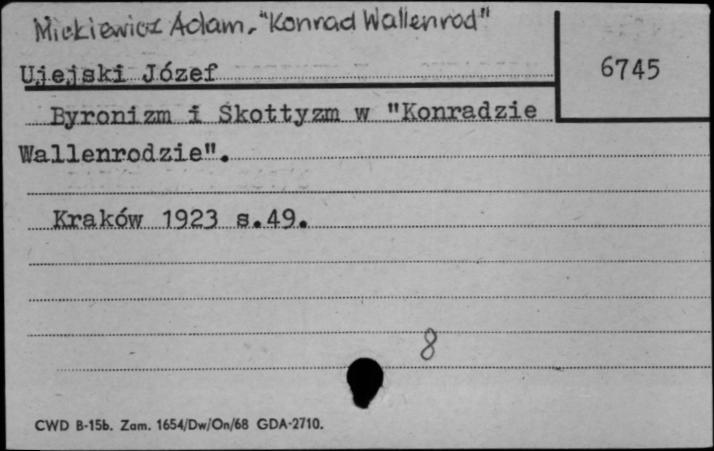 Mickiewicz Adam, "Konrad Wallenrod"
Ujejski Józef
6745
Byronizm i Skottyzm w "Konradzie
Wallenrodzie".
Kraków 1923 s.49.
8
CWD B-15b. Zam. 1654/Dw/On/68 GDA-2710.